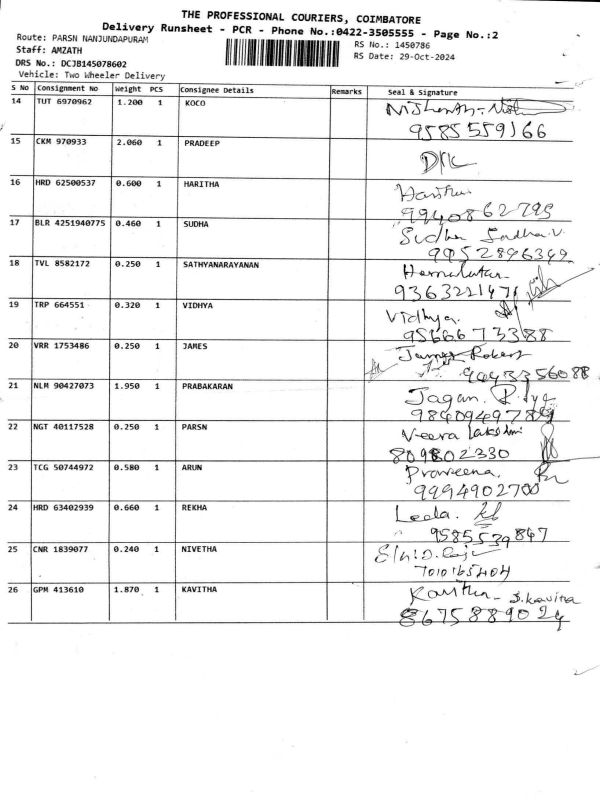 THE PROFESSIONAL COURIERS, COIMBATORE
Delivery Runsheet - PCR - Phone No.:0422-3505555 - Page No.:2
Route: PARSN NANJUNDAPURAM
RS No.: 1450786
Staff: AMZATH
RS Date: 29-Oct-2024
DRS No.: DCJB145078602
Vehicle: Two Wheeler Delivery
S No Consignment No Weight PCS Consignee Details Remarks Seal & Signature
14 TUT 6970962 1.200 1 KOCO
9585559166
15 CKM 970933 2.060 1 PRADEEP
16 HRD 62500537 0.600 1 HARITHA Haritha
9940862795
17 BLR 4251940775 0.460 1 SUDHA Sudha
9952896349
18 TVL 8582172 0.250 1 SATHYANARAYANAN Hemalatha
9363221471
19 TRP 664551 0.320 1 VIDHYA Vidhya.
9566673388
20 VRR 1753486 0.250 1 JAMES James Robert
21 NLM 90427073 1.950 1 PRABAKARAN Jagan.
22 NGT 40117528 0.250 1 PARSN Veera Lakshmi
809802330
23 TCG 50744972 0.580 1 ARUN Praveena.
9994902700
24 HRD 63402939 0.660 1 REKHA Leela.
9585539847
25 CNR 1839077 0.240 1 NIVETHA
26 GPM 413610 1.870 1 KAVITHA Kavitha - S.Kavitha
8675889024